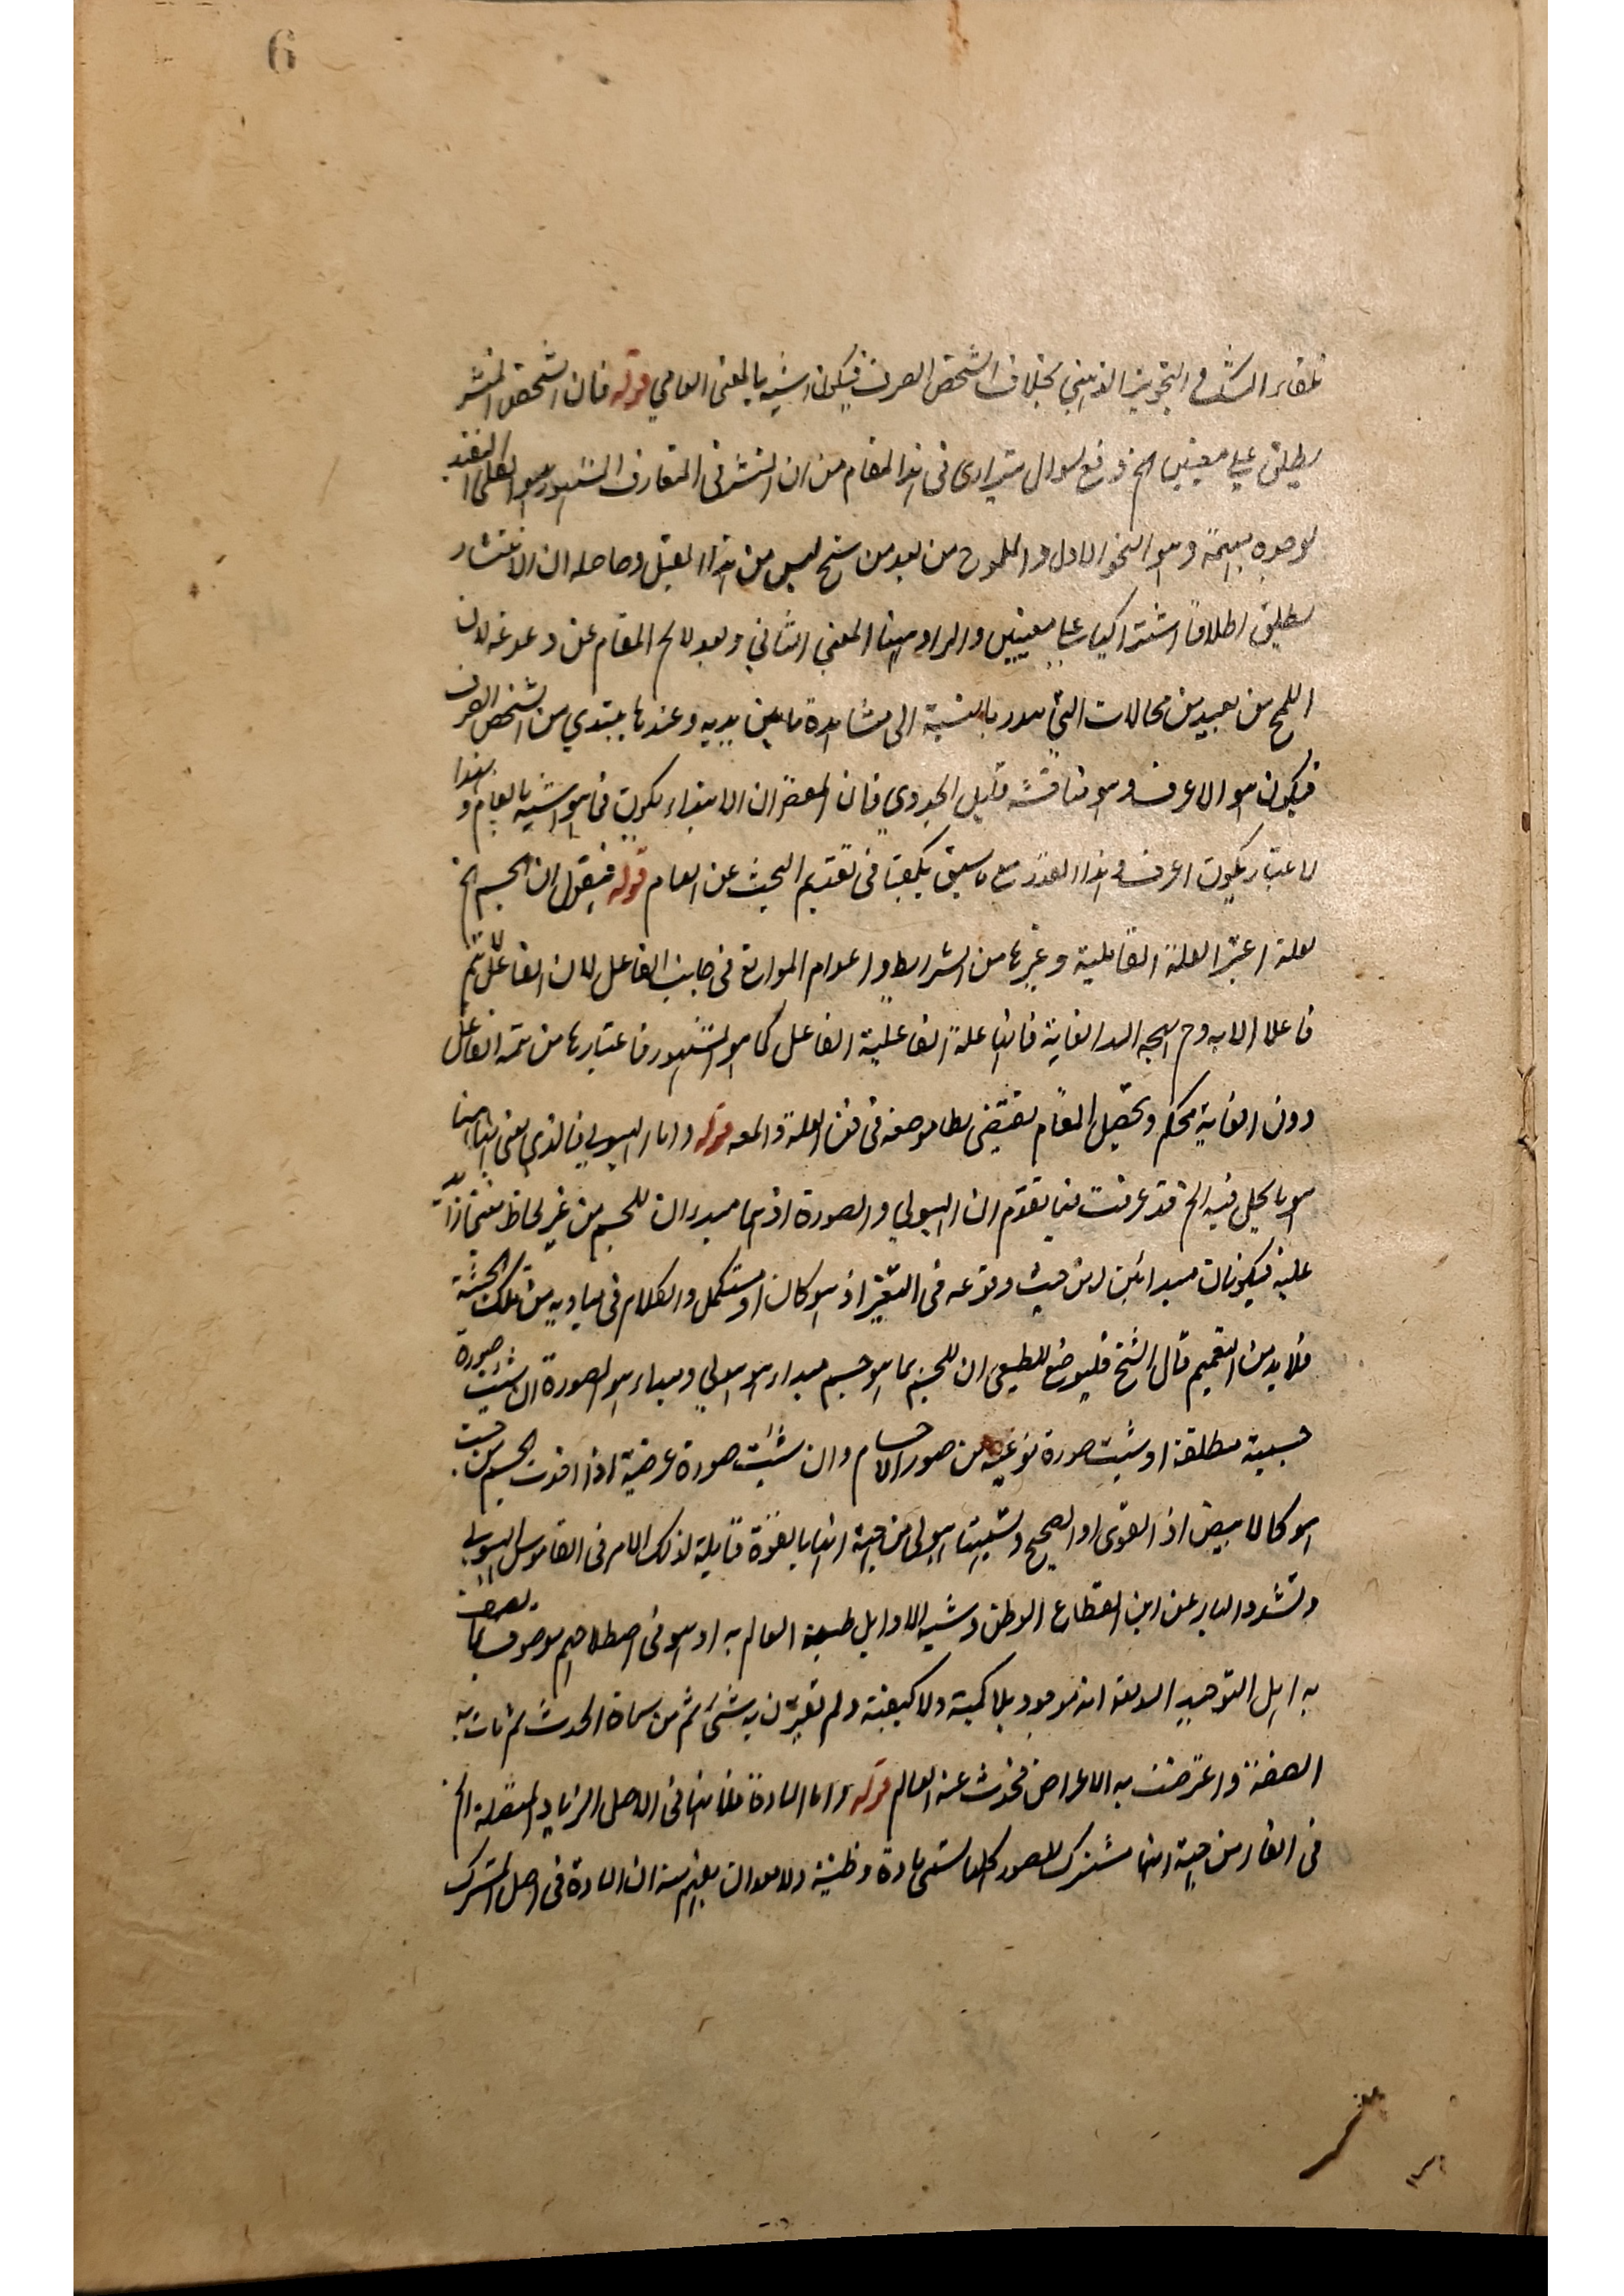 6
لبقاء الشك في التجويز الذهني بخلاف الشخص الصرف فيكون اشبه بالمعنى العامي قوله فان الشخص المنتشر
يطلق على معنيين الخ دفع لسوال يترااى في هذا المقام من ان المنتشر في المتعارف المشهور هو الكلي المقيد
بوحدة مبهمة وهو النحو الاول والملموح من بعد من سنح ليس من هذا القبيل وحاصله ان الانتشار
يطلق اطلاقا اشتراكيا على معنيين والمراد ههنا المعنى الثاني وبعد لا يخ المقام عن دغدغه لان
اللمح من بعيد من محالات التي تندر بالنسبة الى مشاهدة ما بين يديه وعندها يبتدي من الشخص الصرف
فيكون هو الاعرف وهو مناقشة قليل الجدوى فان الغرض ان الابتداء يكون في هو اشبه بالعام وبهذا
الاعتبار يكون اعرف وهذا القدر مع ما سبق يكفينا في تقديم البحث عن العام قوله فيقول ان الجسم الخ
لعله اعتبر العلة القابلية وغيرها من الشرايط واعدام الموانع في جانب الفاعل لان الفاعل لا يتم
فاعلا الا به وح يتجه الغاية فانها علة لفاعلية الفاعل كما هو المشهور فاعتبارها من تتمة الفاعل
دون الغاية تحكم وتحصيل المقام يقتضي بطا موضعه في فن العلة والمعه قوله واما الهيولى فالذي يعنى بها ههنا
هو ما يحل فيه الخ قد عرفت فيما تقدم ان الهيولى والصورة انما هما مبدءان للجسم من غير لحاظ معنى زايد
عليه فيكونان مبدائين له من حيث وقوعه في التغير اذ هو كان او مستكمل والكلام في مباديه من تلك الحيثية
فلا بد من التعميم قال الشيخ فليوضع للطبيعي ان للجسم بما هو جسم مبداء هو هيولى ومبداء هو الصورة ان شئت صورة
جسمية مطلقة او شئت صورة نوعية من صور الاجسام وان شئت صورة عرضية اذا اخذت الجسم من حيث
هو كالابيض اذ القوى او الصحيح وتسميتها هيولى من جهة انها بالقوة قابلة لذلك الامر في القاموس الهيولى
وتشدد الياء عن ابن القطاع القطن وشبه الاوايل طينة العالم به او هو في اصطلاحهم موصوف بما يصف
به اهل التوحيد الله تعه انه موجود بلا كمية ولا كيفية ولم تقترن به شيء ثم من سماة الحدث ثم حلت به
الصفة واعترضت به الاعراض فحدث عنه العالم قوله واما المادة فلانها في الاصل الزيادة المتصلة الخ
في الشفا ومن جهة انها مشترك للصور كلها تسمى مادة وطينة ولا بعد ان يفهم منه ان المادة في اصل المشترك